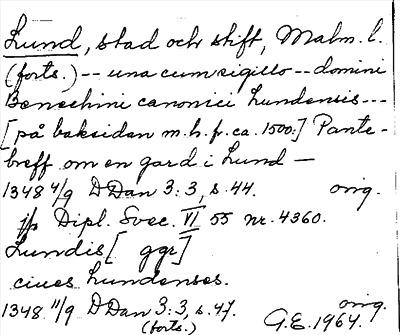 Lund, stad och stift, Malm. l.
(forts.) -- una cum sigillo -- domini
Benechini canonici Lundensis ---
[på baksidan m. h. fr. ca. 1500:] Pante-
breff om en gard i Lund —
1348 4/9 DDan 3:3, s. 44. orig.
jfr Dipl. Svec. VI 55 nr. 4360.
Lundis [ ggr]
ciues Lundenses.
1348 11/9 DDan 3:3, s. 47. orig.
(forts.) G.E. 1964.